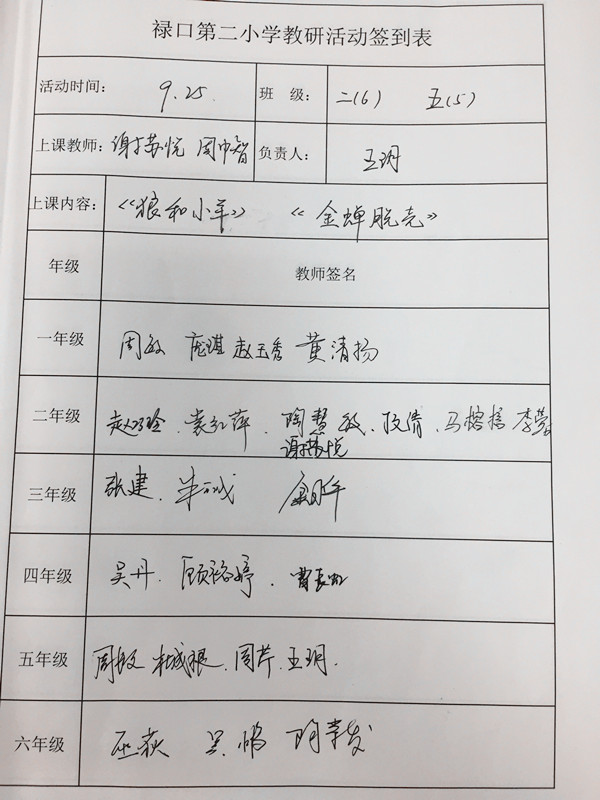 禄口第二小学教研活动签到表
活动时间： 9.25 班 级： 二(6) 五(5)
上课教师： 谢苏悦 周中智 负责人： 王玥
上课内容： 《狼和小羊》 《金蝉脱壳》
年级 教师签名
一年级 周敏 庞琪 赵玉香 黄清扬
二年级 赵巧玲、袁红萍、陶慧敏、段倩、马榕榕 李莹
谢苏悦
三年级 张建、朱
四年级 吴丹、顾裕婷、曹
五年级 周敏 杜成根、周芹、王玥.
六年级 巫荻 吴 陶荣发